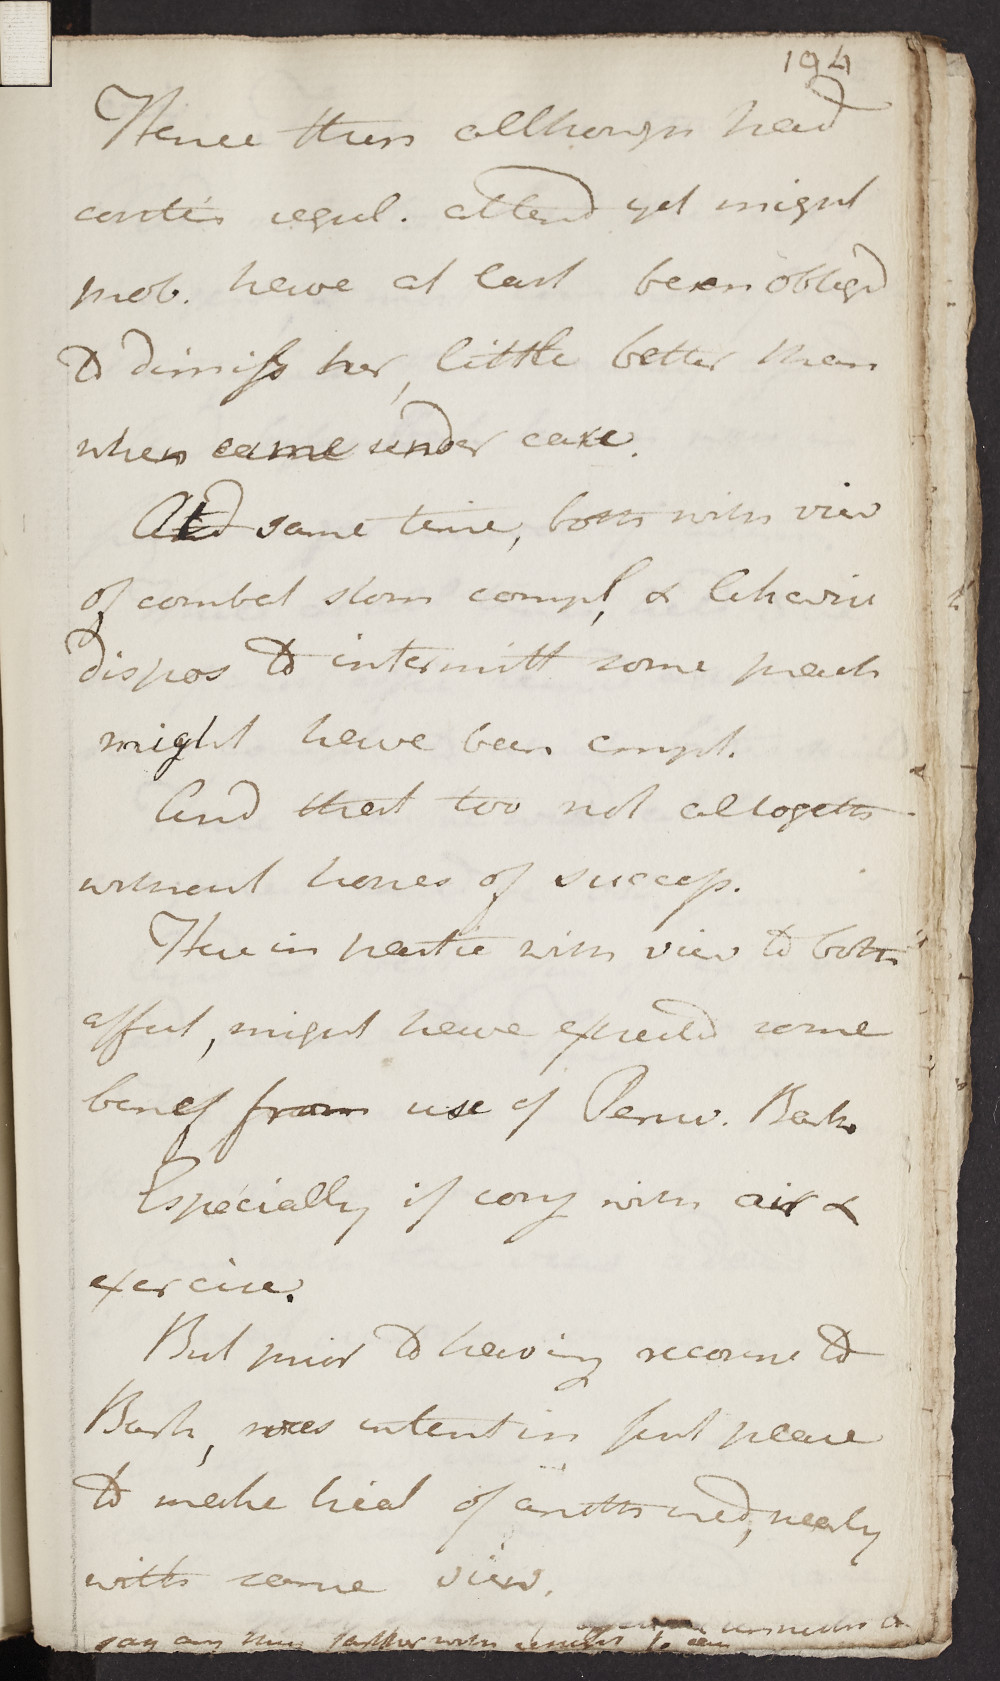 194
Hence then although had
contin regul. attend yet might
prob. have at last been obligd
to dimiss her, little better than
when came under care.
At same time, both with view
of combat stom compl, & likewise
dispos to intermitt some pract
might have been empl.
And that too not altogeth
without hopes of success.
Here in partic with view to both
affect, might have expected some
benef from use of Peruv. Bark
Especially if conj with air &
exercise.
But prior to having recourse to
Bark, was intent in first place
to make trial of anoth med, nearly
with same view.
say any thing farther with respect to